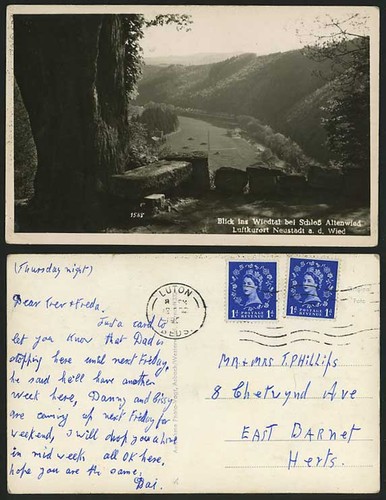 1587
Blick ins Wiedtal bei Schloß Altenwied
Luftkurort Neustadt a. d. Wied
(Thursday night)
Dear Trev & Freda.
Just a card to
let you know that Dad is
stopping here until next Friday,
he said he'll have another
week here, Danny and Cissy
are coming up next Friday for
weekend, I will drop you a line
in mid week all OK here,
hope you are the same.
Dai.
LUTON
BEDS
1D 1D
POSTAGE REVENUE
1D 1D
POSTAGE REVENUE
Mr & Mrs T. Phillips
8 Chetwynd Ave
EAST Barnet
Herts.